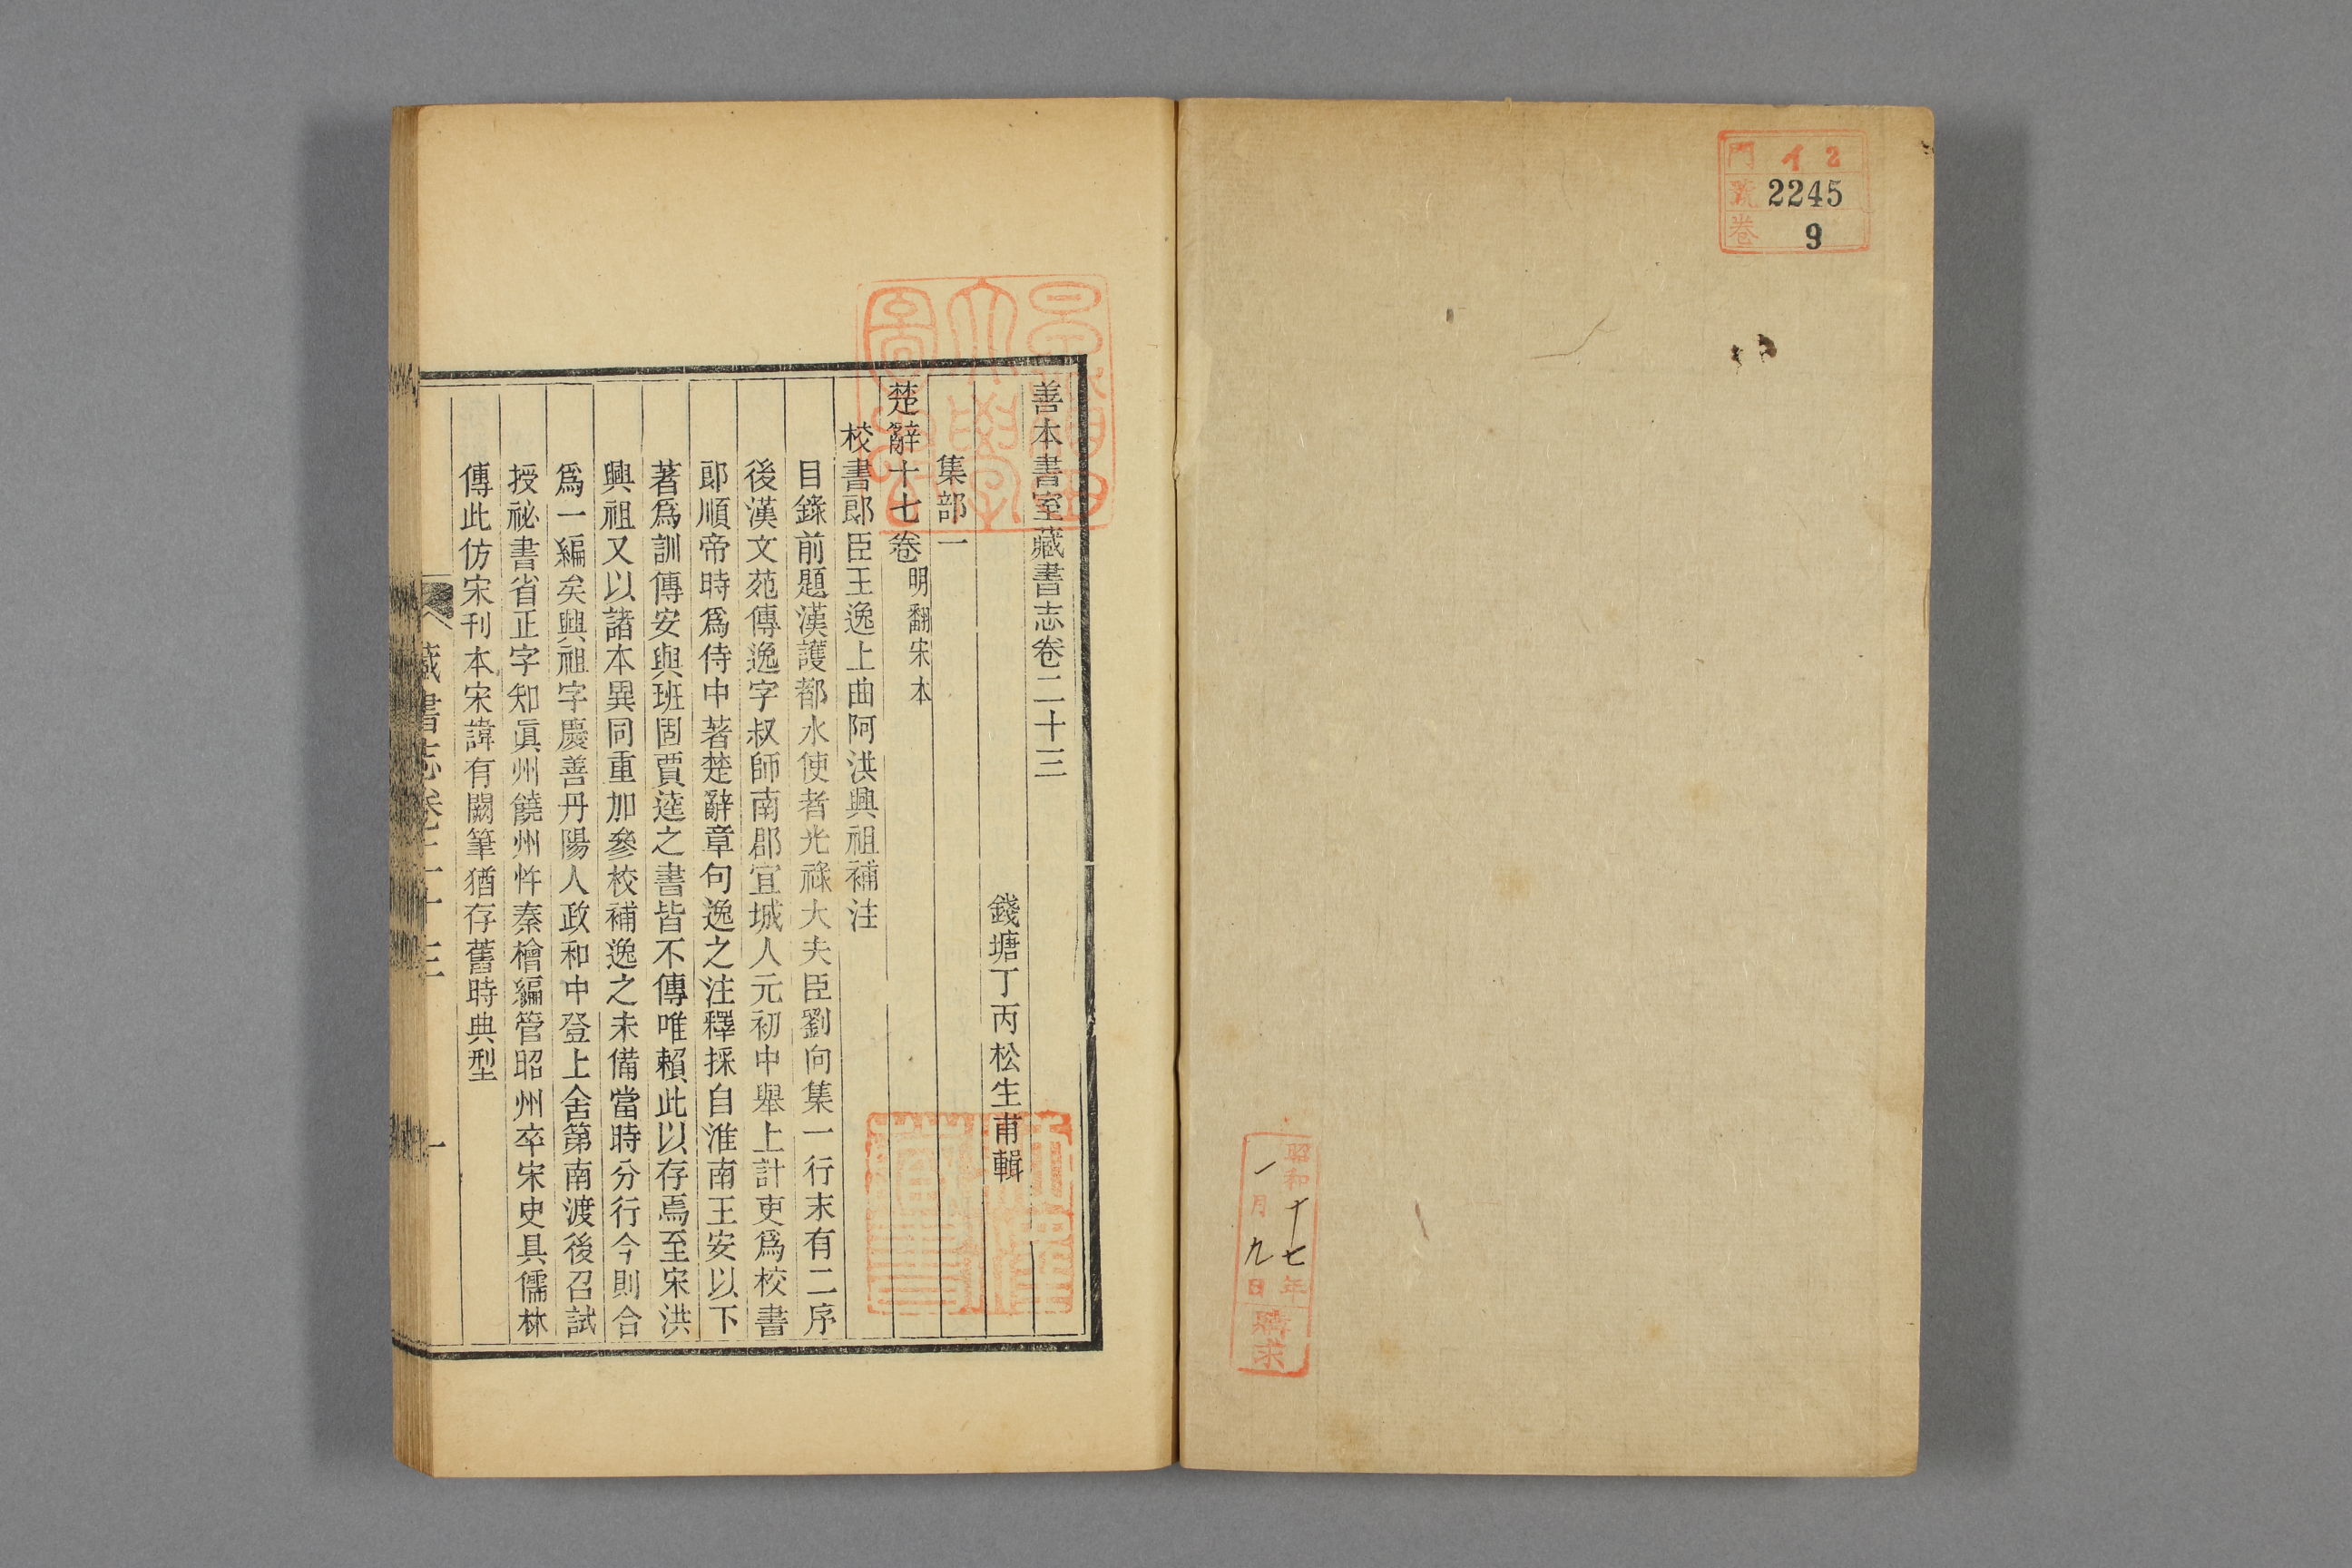 門 イ2
號 2245
卷 9
昭和十七年
一月九日
購求
善本書室藏書志卷二十三
錢塘丁丙松生甫輯
集部一
楚辭十七卷明翻宋本
校書郎臣王逸上曲阿洪興祖補注
目錄前題漢護都水使者光祿大夫臣劉向集一行末有二序
後漢文苑傳逸字叔師南郡宜城人元初中舉上計吏爲校書
郎順帝時爲侍中著楚辭章句逸之注釋採自淮南王安以下
著爲訓傳安與班固賈逵之書皆不傳唯賴此以存焉至宋洪
興祖又以諸本異同重加參校補逸之未備當時分行今則合
爲一編矣興祖字慶善丹陽人政和中登上舍第南渡後召試
授祕書省正字知眞州饒州忤秦檜編管昭州卒宋史具儒林
傳此仿宋刊本宋諱有闕筆猶存舊時典型
藏書志卷二十三
一